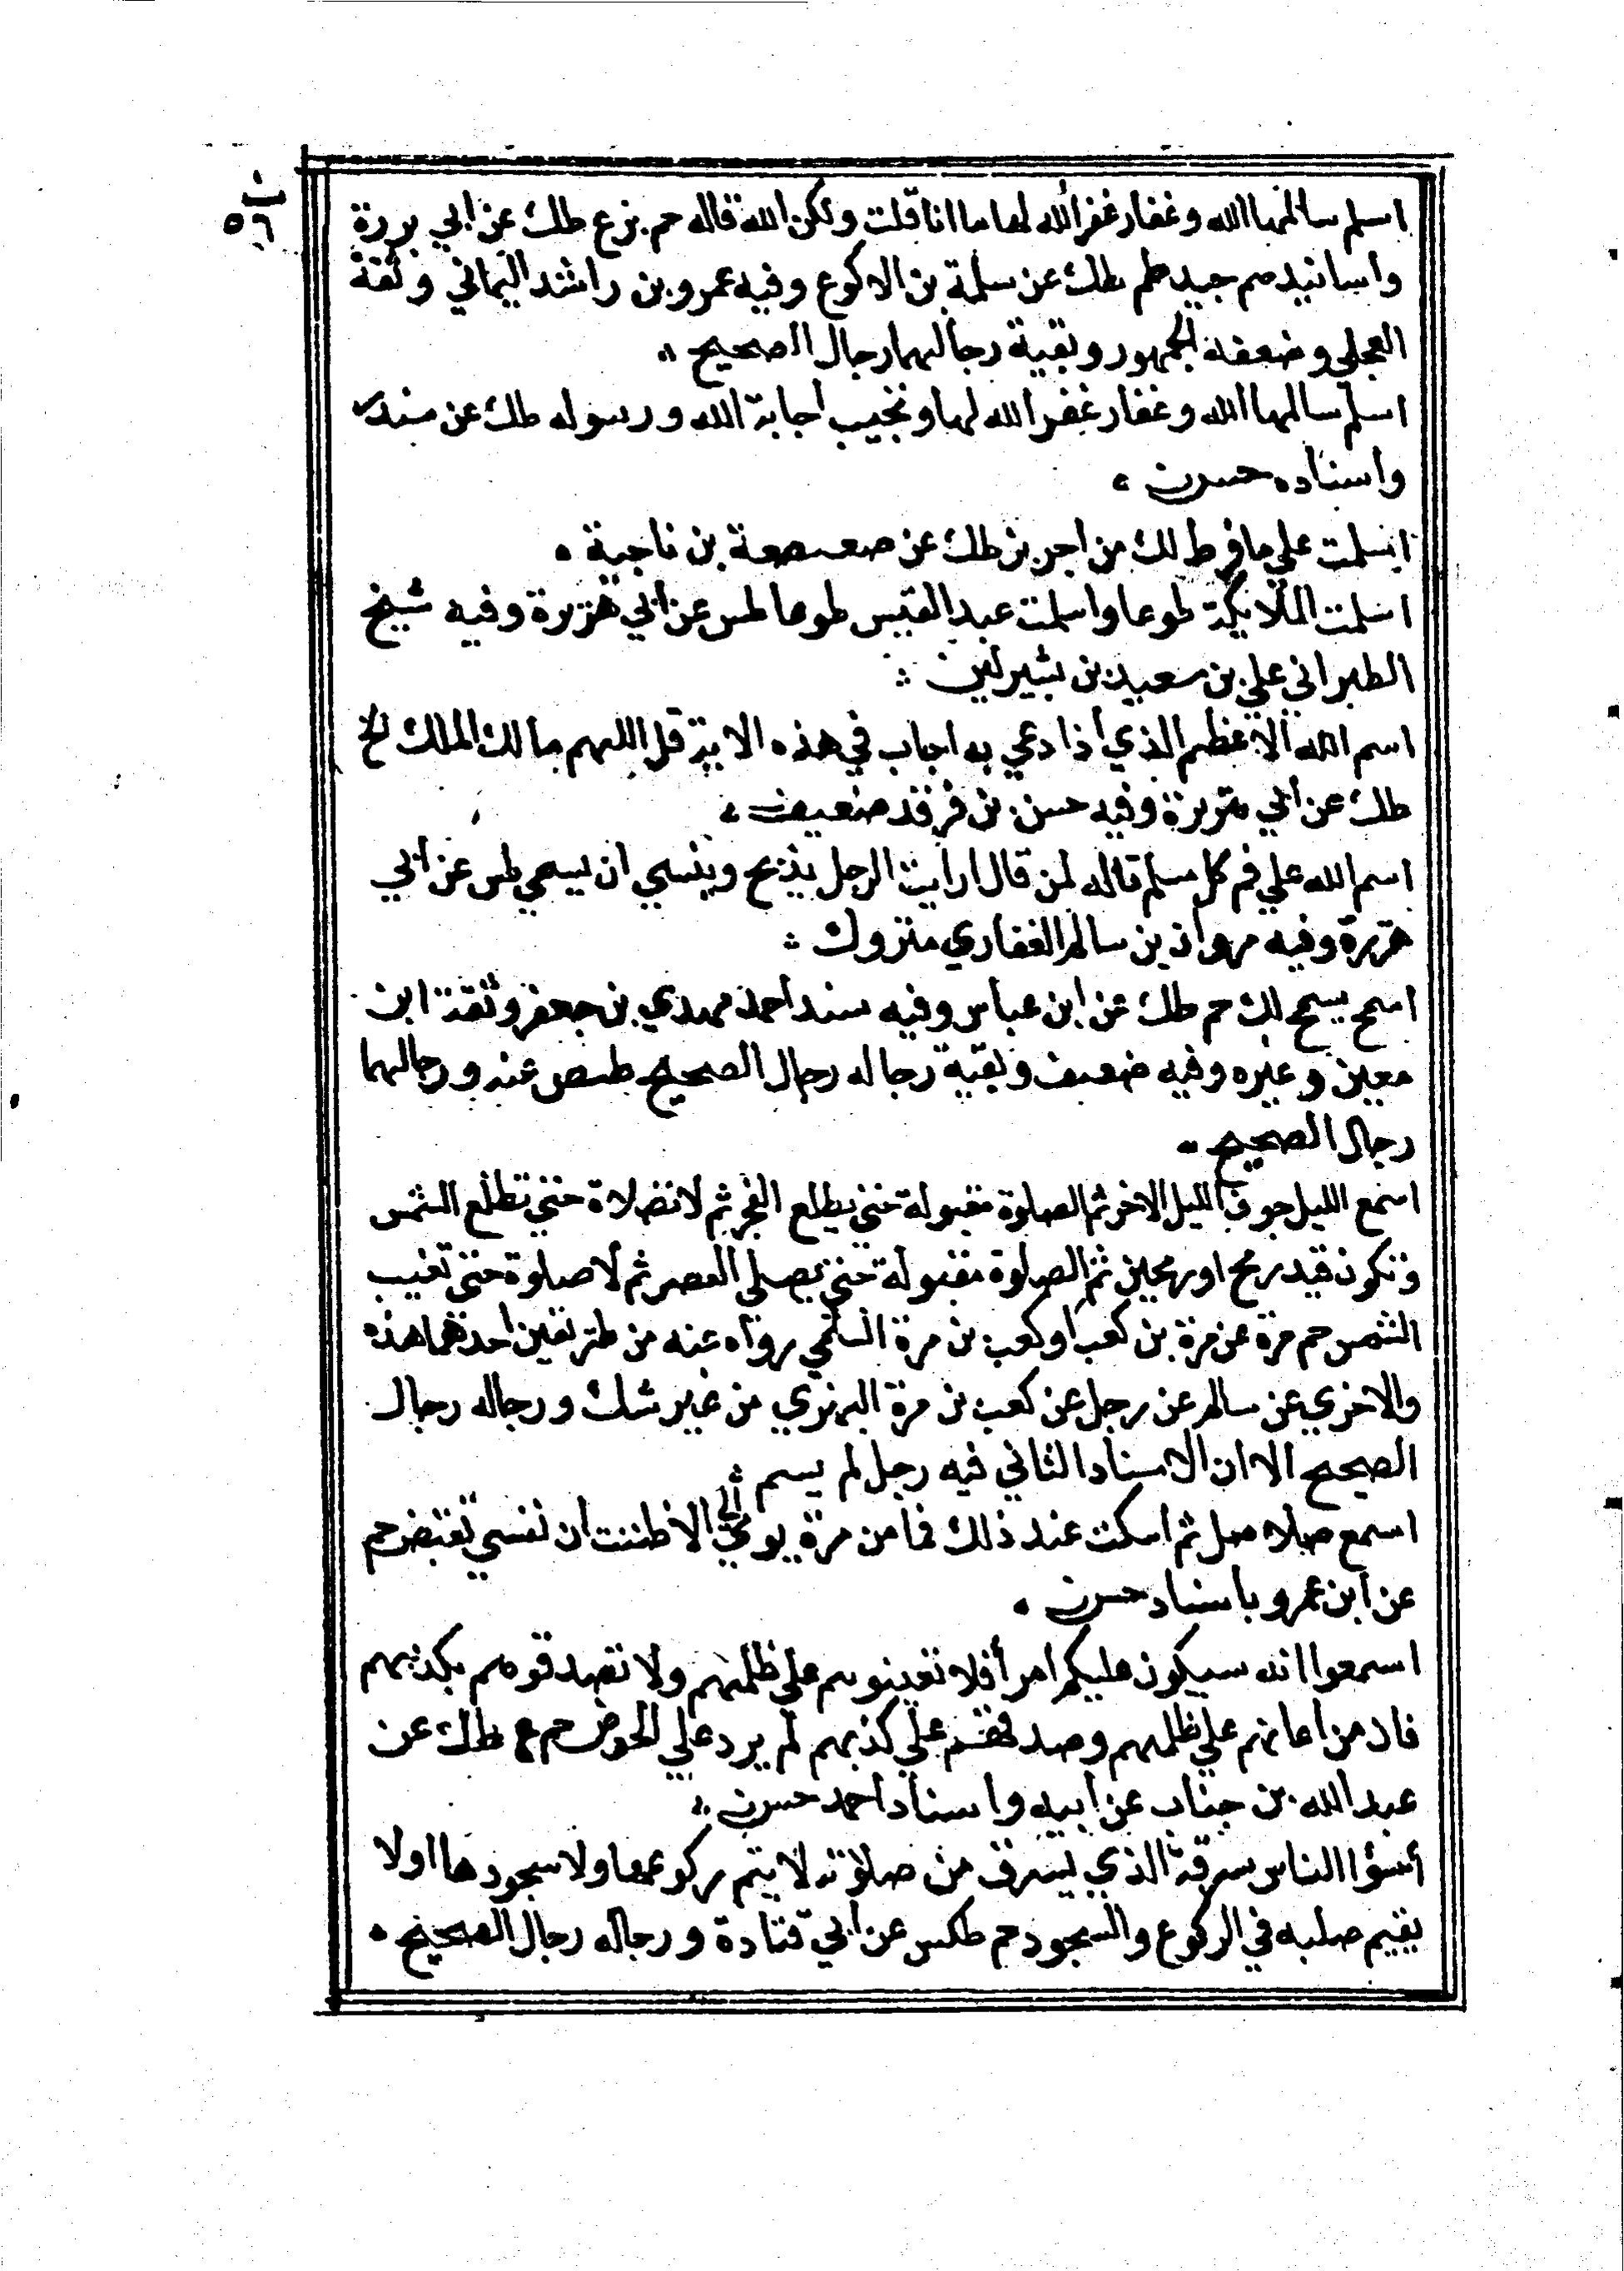 ب
٥٦
اسلم سالمها الله وغفار غفر الله لها ما انا قلت ولكن الله قاله حم بزع طك عن ابي بررة
واسانيدهم جيد طك عن سلمة بن الاكوع وفيه عمرو بن راشد اليماني وثقة
العجلي وضعفه الجمهور وبقية رجالهما رجال الصحيح
اسلم سالمها الله وغفار غفر الله لها وتجيب اجابة الله ورسوله طك عن سندر
واسناده حسن
اسلمت علي ما فرط لك من اجر بز طك عن صعصعة بن ناجية
اسلمت الملائكة طوعا واسلمت عبد القيس طوعا طس عن ابي هريرة وفيه شيخ
الطبراني علي بن سعيد بن بشير لين
اسم الله الاعظم الذي اذا دعي به اجاب في هذه الاية قل اللهم مالك الملك الخ
طك عن ابي هريرة وفيه حسن بن فرقد ضعيف
اسم الله علي فم كل مسلم قاله لمن قال ارايت الرجل يذبح وينسي ان يسمي طس عن ابي
هريرة وفيه مروان بن سالم الغفاري متروك
اسمح يسمح لك حم طك عن ابن عباس وفيه سند احمد مهدي بن جعفر وثقة ابن
معين وغيره وفيه ضعف وبقية رجاله رجال الصحيح طص عنه ورجالهما
رجال الصحيح
اسمع الليل جوف الليل الاخر ثم الصلوة مقبولة حتي يطلع الفجر ثم لا تصلاة حتي تطلع الشمس
وتكون قيد رمح او رمحين ثم الصلوة مقبولة حتي يصلي العصر ثم لا صلوة حتي تغيب
الشمس حم مرة عن مرة بن كعب او كعب بن مرة السلمي رواه عنه من طريقين احدهما هذه
والاخري عن سالم عن رجل عن كعب بن مرة البهزي من غير شك ورجاله رجال
الصحيح الا ان الاسناد الثاني فيه رجل لم يسم
اسمع صلاصل ثم اسكت عند ذلك فما من مرة يوحي الي الا ظننت ان نفسي تقبض حم
عن ابن عمرو باسناد حسن
اسمعوا انه سيكون عليكم امرأ فلا تعينوهم علي ظلمهم ولا تصدقوهم بكذبهم
فان من اعانهم علي ظلمهم وصدقهم علي كذبهم لم يرد علي الحوض حم ع طك عن
عبد الله بن خباب عن ابيه واسناد احمد حسن
أسؤا الناس سرقة الذي يسرق من صلاته لا يتم ركوعها ولا سجودها او لا
يقيم صلبه في الركوع والسجود حم طكس عن ابي قتادة ورجاله رجال الصحيح